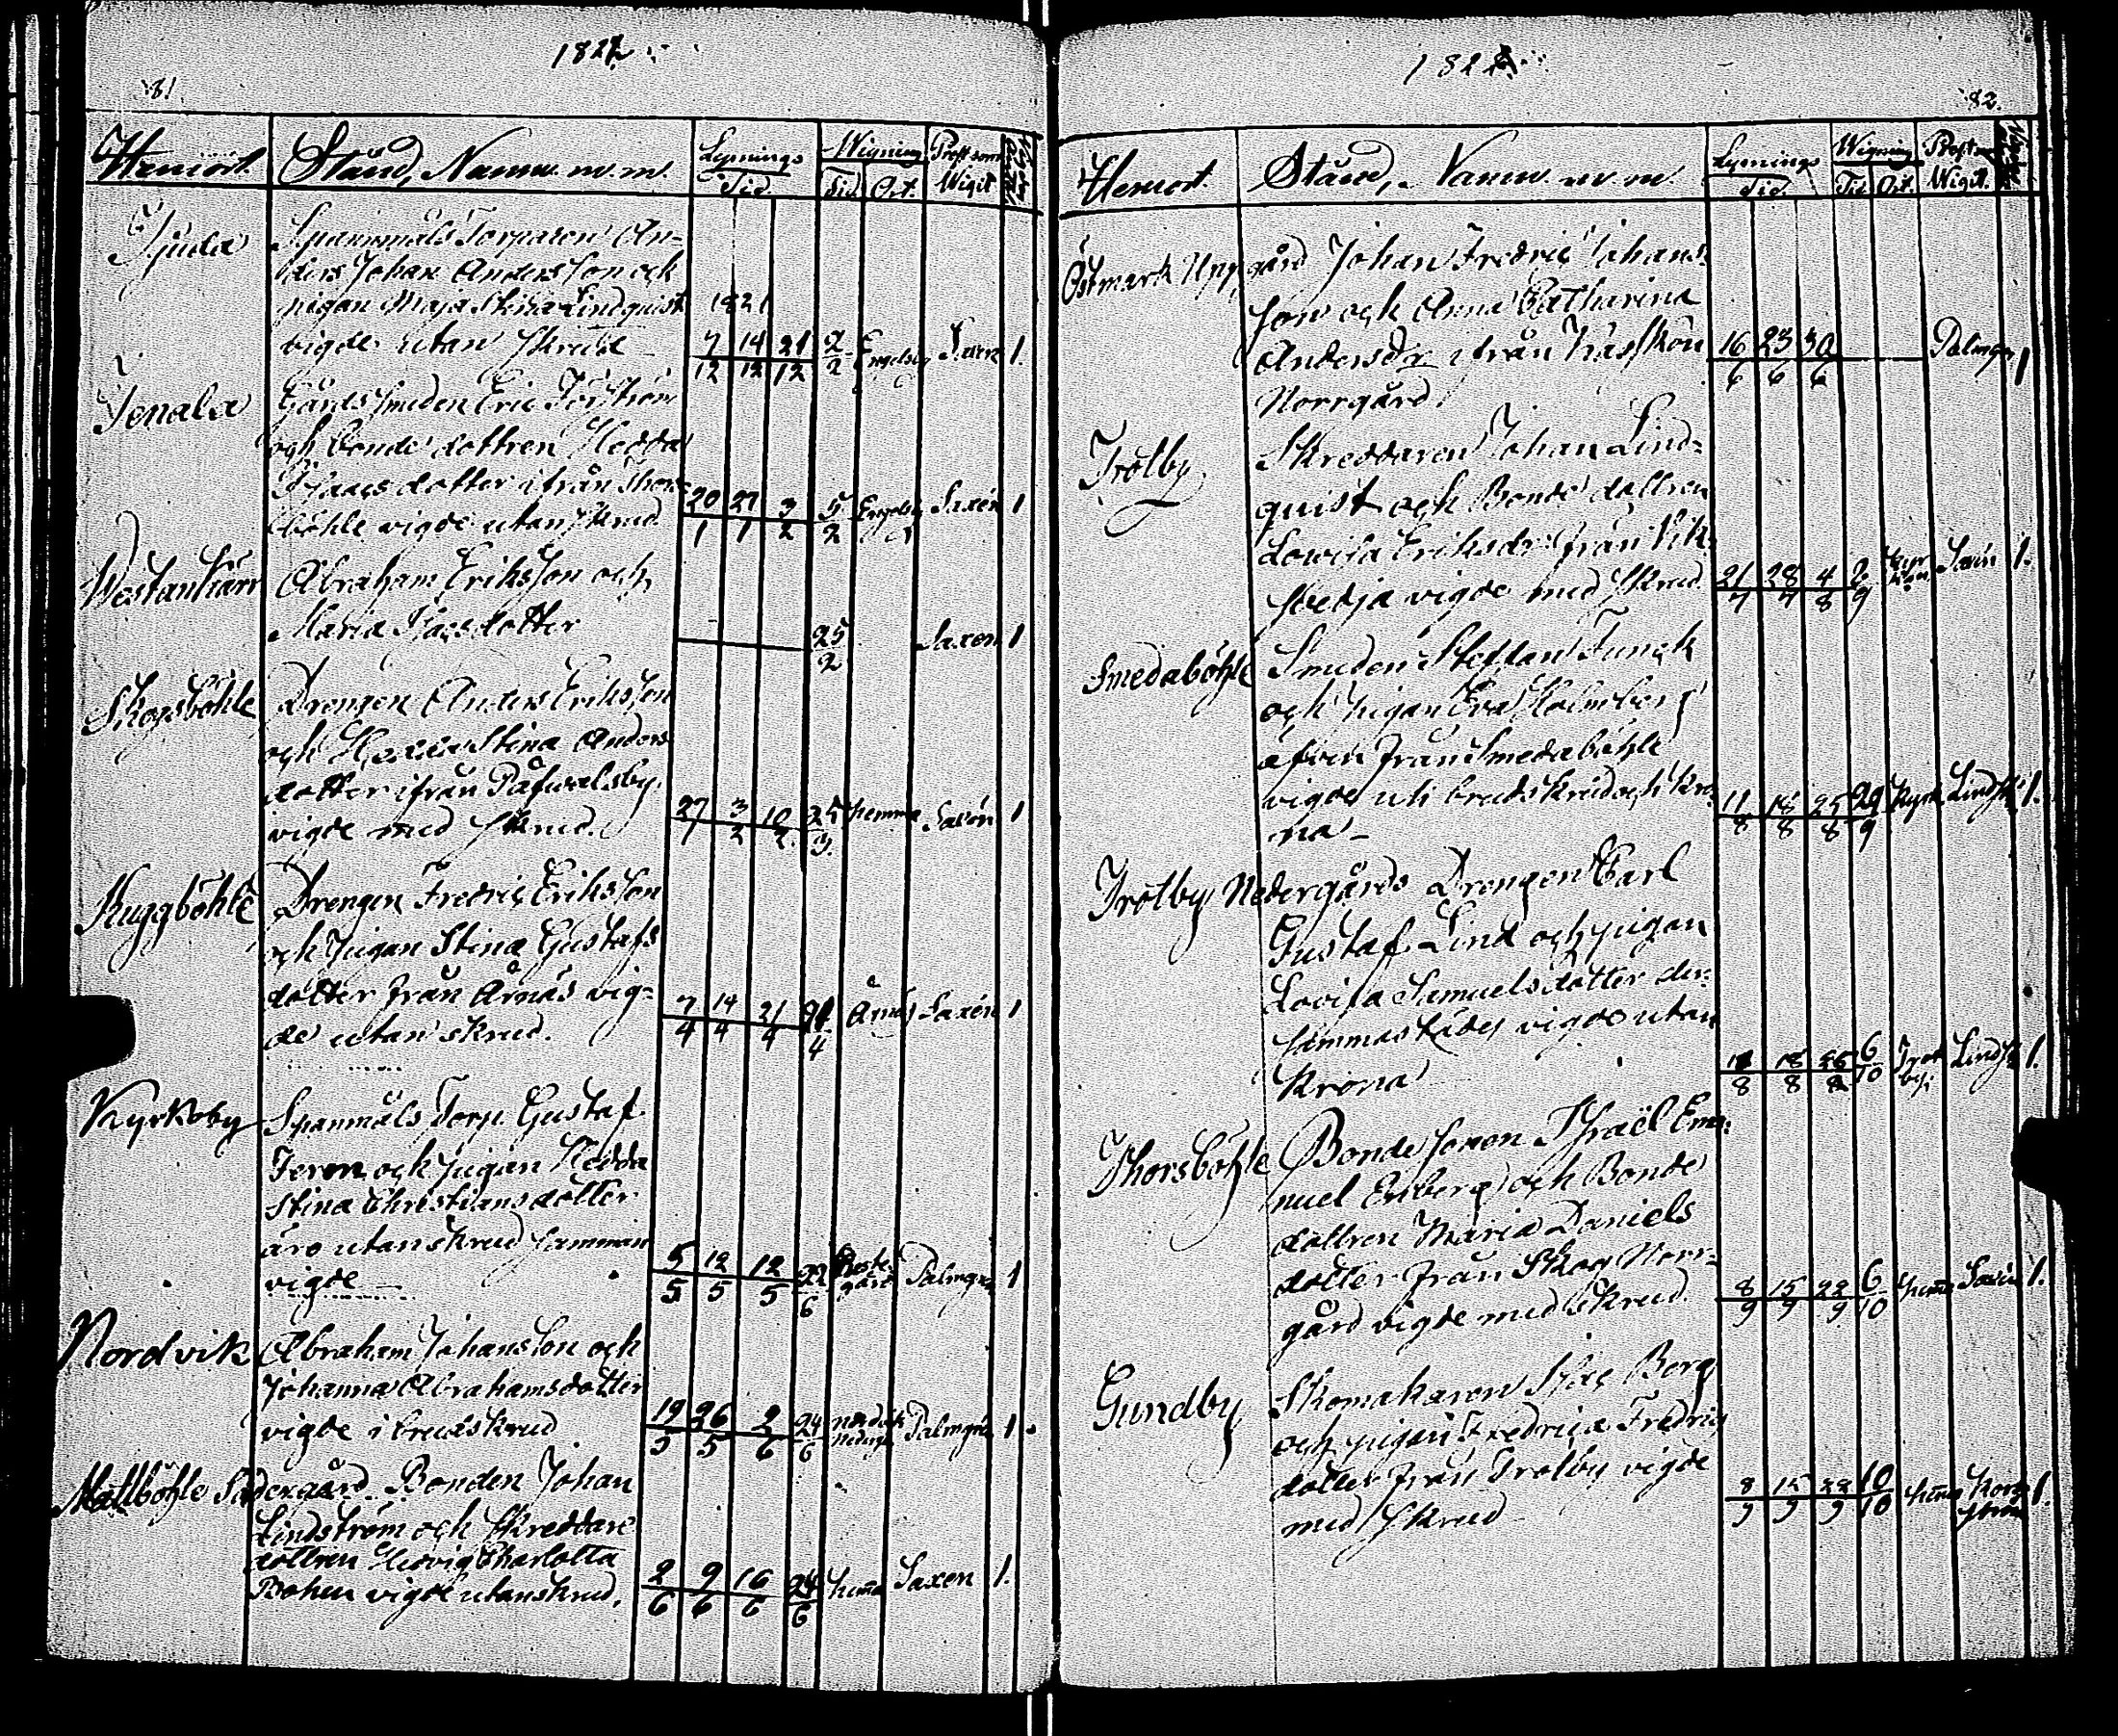 1822
81
Hemort. Stånd, Namn m.m. Lysnings Tid. Wigning Tid Ort. Prest som Wigit
Tjuda
Spanmåls Torparen An-
ders Johan Andersson och
Pigan Maja Stina Lindquist 1821
vigde utan skrud 7/12 14/12 21/12 2/2 Saxen 1.
Jenala
Gårdssmeden Eric
och Bonde dottren Hedda
Isaacs dotter ifrån Thors-
böhle vigde utan skrud 20/1 27/1 3/2 5/2 Engelsby Saxén 1
Westankärr Abraham Eriksson och
Maria Isacsdotter 25/2 Saxen 1
Skogsböhle Drengen Anders Eriksson
och Stina Anders
dotter ifrån Påfwalsby
vigde med skrud. 27/1 3/2 10/2 25/3 hemma Saxén 1
Kuggböhle Drengen Fredric Eriksson
och Pigan Stina Gustafs
dotter från Årnäs vig-
de utan skrud. 7/4 14/4 21/4 Årnäs Saxén 1
Kyrkoby Spanmåls Torp. Gustaf
och Pigan Hedda
Stina Christiansdotter
äro utan skrud samman
vigde 5/5 12/5 /5 22/6 Prestegård Palmgren 1
Nordvik Abraham Johansson och
Johanna Abrahamsdotter
vigde i brudskrud 19/5 26/5 2/6 24/6 Nordvik Palmgren 1.
Mattböhle Södergård Bonden Johan
Lindström och Skreddare
dottren Hedvig Charlotta
Bohm vigde utan skrud. 2/6 9/6 16/6 24/6 hemma Saxen 1.
1822
82.
Hemort. Stånd, Namn m.m Lysnings Tid Wigning Tid Ort. Prest som Wigit.
Östmark Uppgård Johan Fredric Johans-
son och Anna Catharina
Andersdr ifrån
Norrgård. 16/6 23/6 30/6 Palmgren 1
Trotby
Skreddaren Johan Lind-
quist och Bonde dottren
Lowisa Eriksdr från Vik-
svedja vigde med skrud. 21/7 28/7 4/8 2/9 Saxén 1.
Smedaböhle Smeden Steffan Funck
och Pigan Eva Holmberg
äfven från Smedaböhle
vigde uti brudskrud och kro-
na 11/8 18/8 25/8 29/9 Kyrk 1.
Trotby Nedergårds Drengen Carl
Gustaf Lind och Pigan
Lovisa Samuelsdotter der-
sammastädes vigde utan
krona 18/8 6/10 Trotby 1.
Thorsböhle Bonde sonen Israël Ema-
nuel Enberg och Bonde
dottren Maria Daniels
dotter från Skog Norr-
gård vigde med skrud. 8/9 15/9 22/9 6/10 hemma Saxén 1.
Gundby
Skomakaren Isac Berg
och Pigan Fredrica Fredrics
dotter från Trotby vigde
med skrud 8/9 15/9 22/9 10/10 hemma 1.